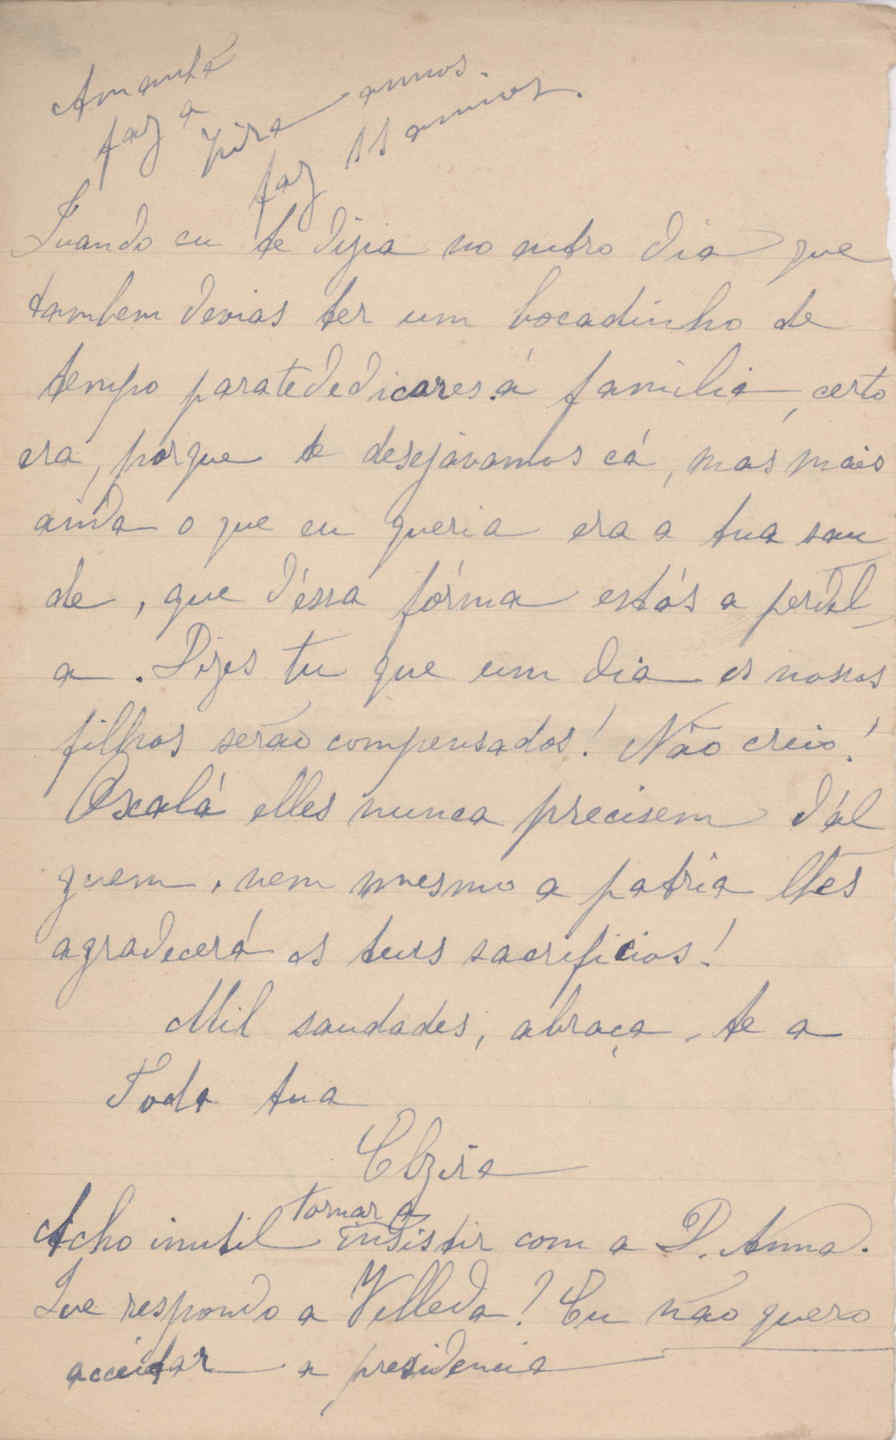 Amanhã
faz a
Pira annos.
faz 11 annos.
Quando eu te dizia no outro dia que
tambem devias ter um bocadinho de
tempo para te dedicares á familia, certo
era, porque te desejavamos cá, mas mais
ainda o que eu queria era a tua sau
de, que d'éssa fórma estás a perdel_
a. Dizes tu que um dia os nossos
filhos serão compensados! Não creio!
Oxalá elles nunca precisem d'al
guem, nem mesmo a patria lhes
agradecerá os teus sacrificios!
Mil saudades, abraça-te a
Toda tua
Elzira
Acho inutil tornar a insistir com a D. Anna.
Que respondo a Velleda? Eu não quero
acceitar a presidencia